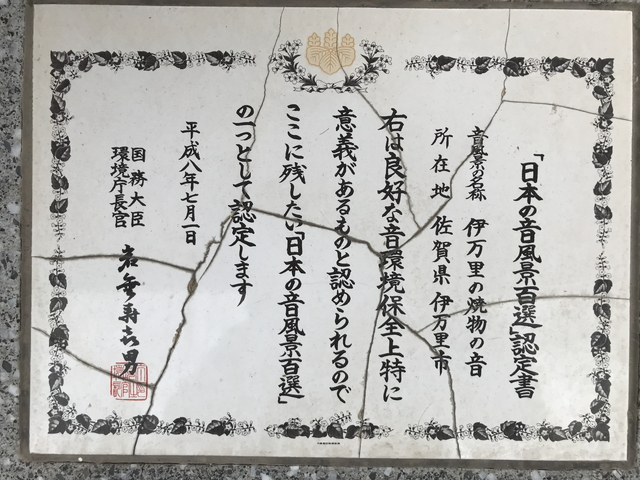 「日本の音風景百選」認定書
音風景の名称 伊万里の焼物の音
所在地 佐賀県 伊万里市
右は良好な音環境保全上特に
意義があるものと認められるので
ここに残したい「日本の音風景百選」
の一つとして認定します
平成八年七月一日
国務大臣
環境庁長官
岩垂寿喜男